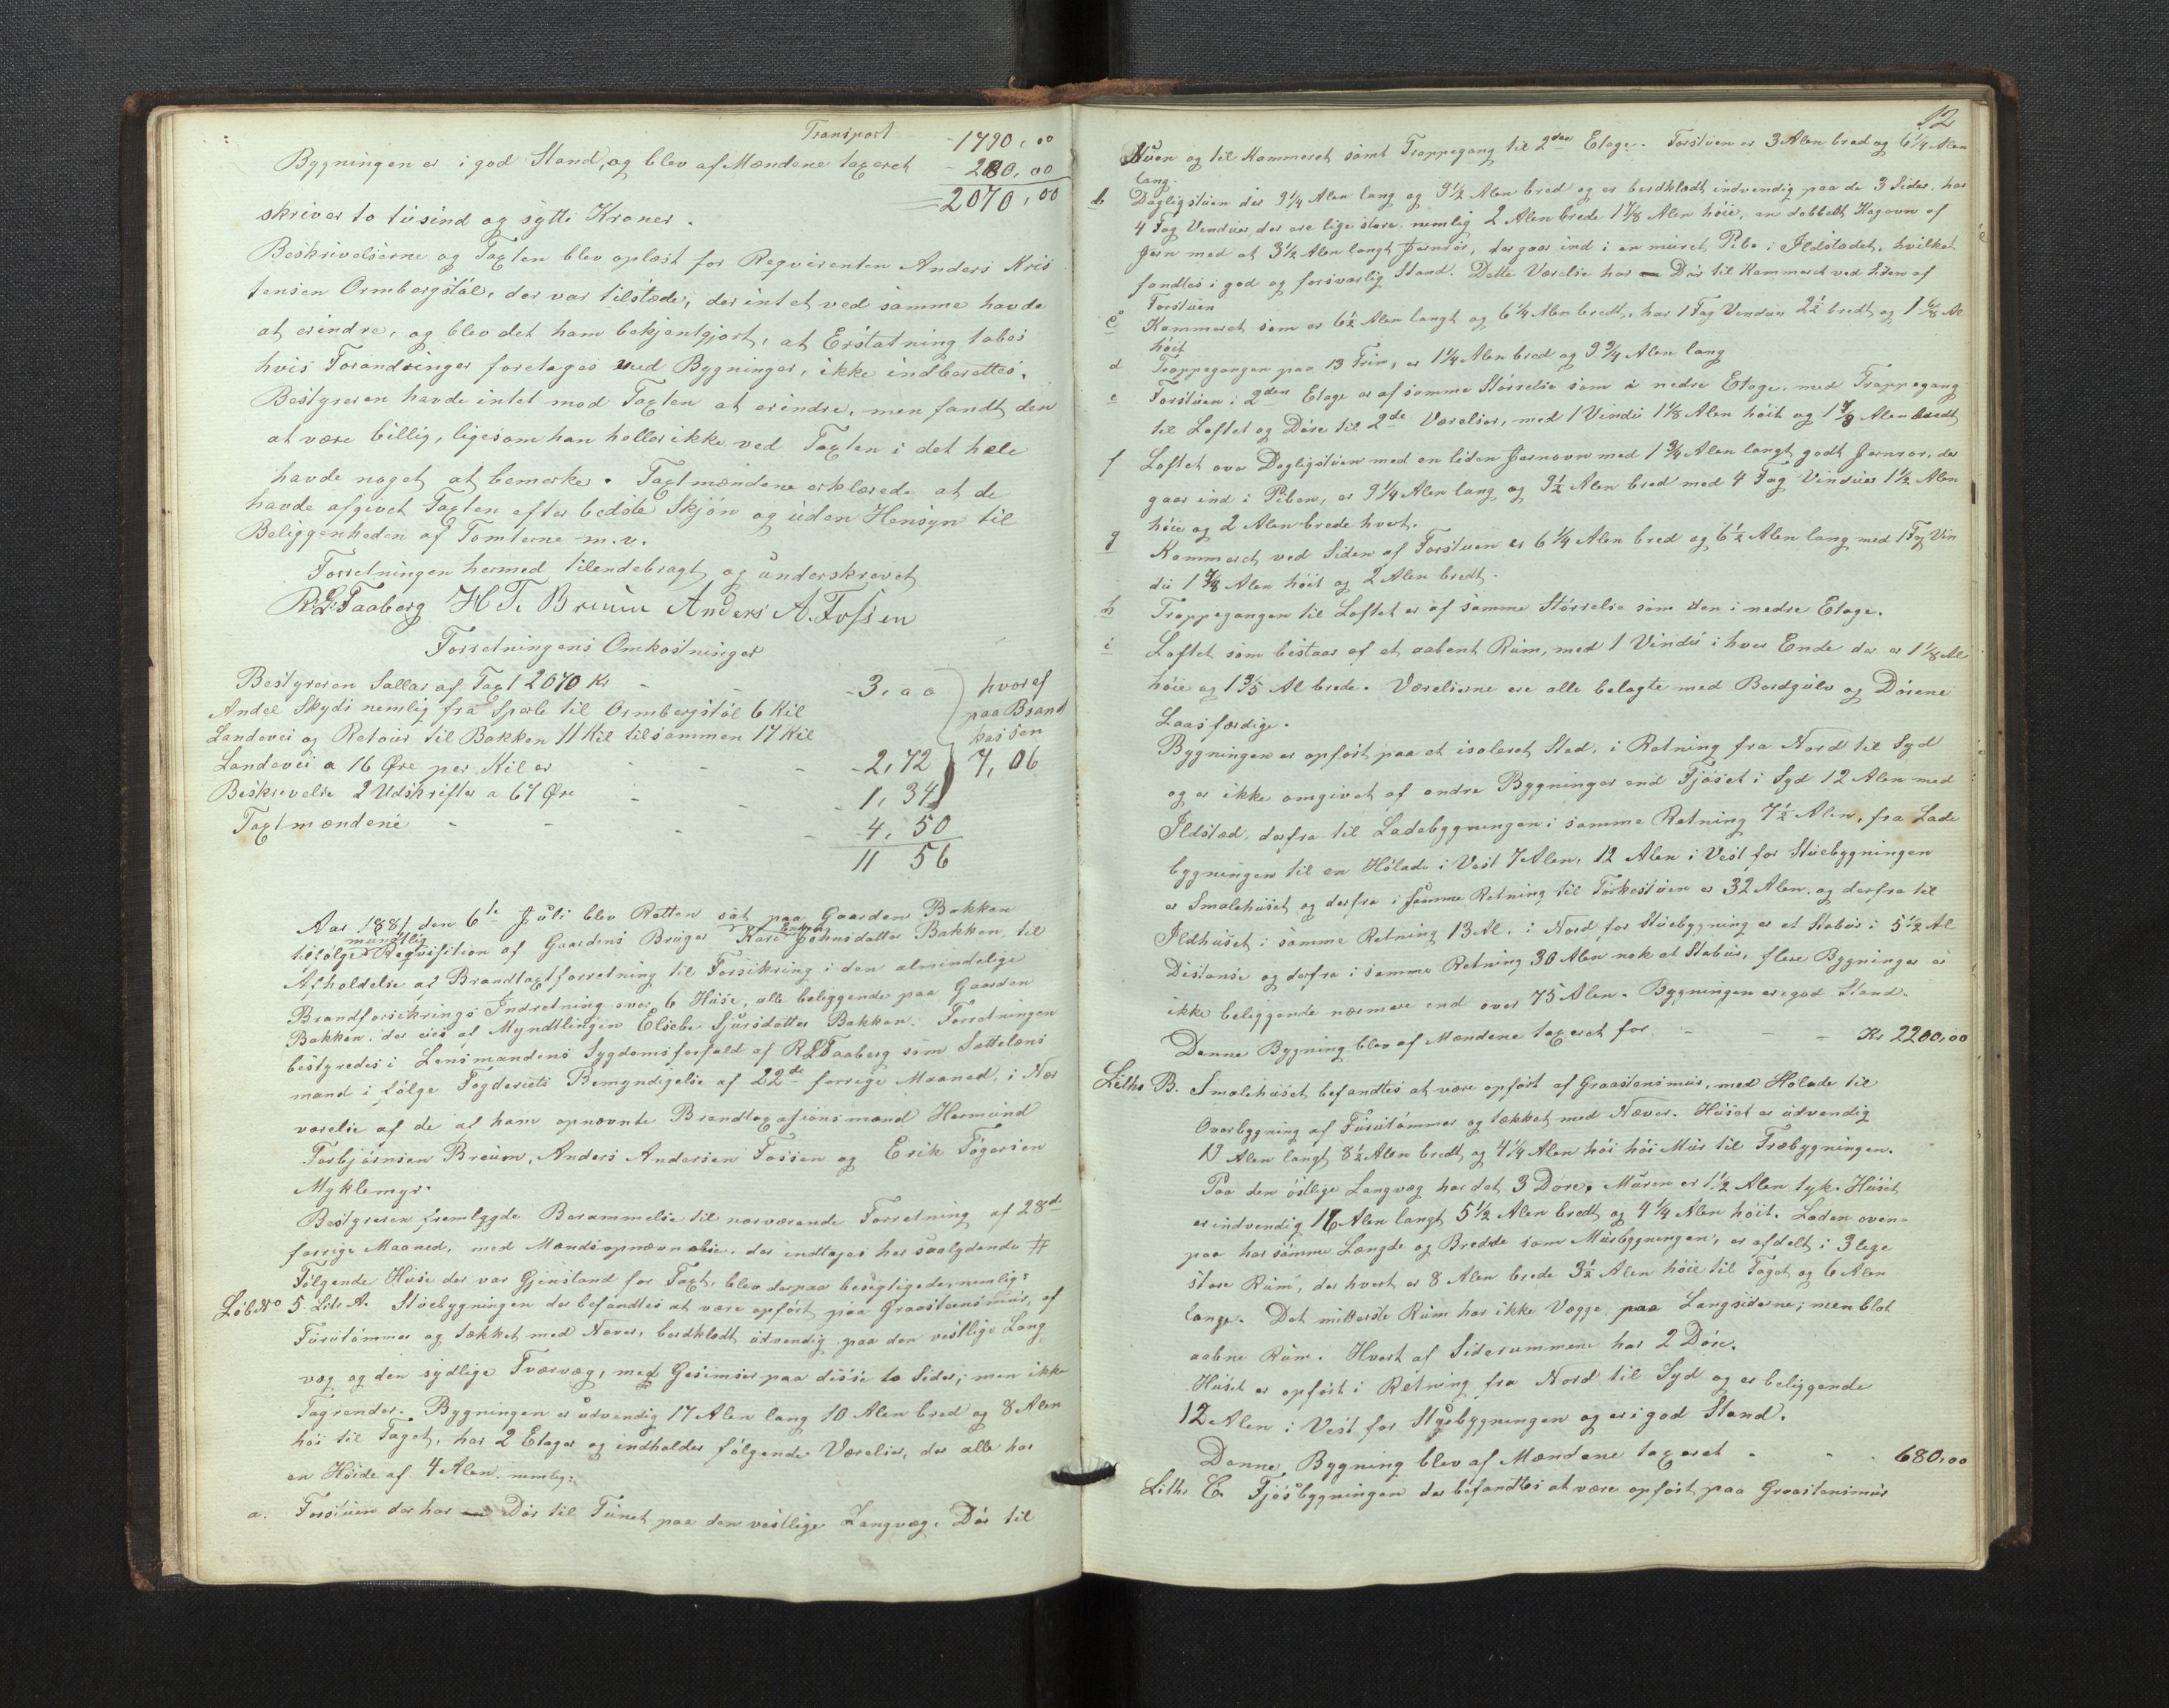 Transport - 1790,00
Bygningen er i god Stand, og blev af Mændene taxeret - 280,00
= 2070,00
skriver to tusind og sytti Kroner.
Beskrivelserne og Taxten blev oplæst for Reqvirenten Anders Kris
tensen Ormbergstøl, der var tilstede, der intet ved samme havde
at erindre, og blev det ham bekjentgjort, at Erstatning tabes
hvis Forandringer foretages ved Bygninger, ikke indberettes.
Bestyreren havde intet mod Taxten at erindre, men fandt den
at være billig, ligesom han heller ikke ved Taxten i det hele
havde noget at bemærke. Taxtmændene erklærede at de
havde afgivet Taxten efter bedste Skjøn og uden Hensyn til
Beliggenheden af Tomterne m.v.
Forretningen hermed tilendebragt og underskrevet
R.L. Faaberg H T. Breum Anders A. Fossen
Forretningens Omkostninger
Bestyreren Sallar af Taxt 2070 Kr - - 3,00 hvoraf
Andel Skyds nemlig fra Sperle til Ormbergstøl 6 Kil paa Brand
Landevei og Retour til Bakken 11 Kil tilsammen 17 Kil kassen
Landevei a 16 Øre per Kil er - - - 2,72 7,06
Beskrivelse 2 Udskrifter a 67 Øre - - - 1,34
Taxtmændene - - - - 4,50
11 56
Aar 1881 den 6te Juli blev Retten sat paa Gaarden Bakken
tilfølge mundtlig Reqvisition af Gaardens Bruger Enken Kari Johnsdatter Bakken, til
Afholdelse af Brandtaxtforretning til Forsikring i den almindelige
Brandforsikrings Indretning over 6 Huse, alle beliggende paa Gaarden
Bakken, der eies af Myndtlingen Elsebe Sjursdatter Bakken. Forretningen
bestyredes i Lensmandens Sygdomsforfald af R L Faaberg som Sættelens
mand i følge Fogderiets Bemyndigelse af 22de forrige Maaned, i Nær
værelse af de af ham opnævnte Brandtaxasionsmænd Hermund
Torbjørnsen Breum, Anders Andersen Fossen og Erik Tøgersen
Myklemyr.
Bestyreren fremlagde Berammelse til nærværende Forretning af 28de
forrige Maaned, med Mandsopnævnelse, der indtages her saalydende #
Følgende Huse der var Gjenstand for Taxt, blev derpaa besigtigede, nemlig:
Løb No 5. Litr A. Stuebygningen der befandtes at være opført paa Graasteensmur, af
Furutømmer og tækket med Næver, bordklædt udvendig paa den vestlige Lang
væg og den sydlige Tværvæg, med Gesimser paa disse to Sider; men ikke
Tagrender. Bygningen er udvendig 17 Alen lang 10 Alen bred og 8 Alen
høi til Taget, har 2 Etager og indholder følgende Værelser, der alle har
en Høide af 4 Alen, nemlig:
a. Forstuen der har Dør til Tunet paa den vestlige Langvæg. Dør til
12
Stuen og til Kammeret samt Trappegang til 2den Etage. Forstuen er 3 Alen bred og 6¼ Alen
lang.
b Dagligstuen der 9¼ Alen lang og 9½ Alen bred og er bordklædt indvendig paa de 3 Sider, har
4 Fag Vinduer, der ere lige store, nemlig 2 Alen brede 1⅞ Alen høie, en dobbelt Kogovn af
Jern med et 3½ Alen langt Jernrør, der gaar ind i en muret Pibe i Ildstedet, hvilket
fandtes i god og forsvarlig Stand. Dette Værelse har Dør til Kammeret ved Siden af
Forstuen
c Kammeret som er 6½ Alen langt og 6¼ Alen bredt, har 1 Fag Vinduer 2½ bredt og 1 6/8 Al
høit
d Trappegangen paa 13 Trin, er 1¼ Alen bred og 3¾ Alen lang
e Forstuen i 2den Etage er af samme Størrelse som i nedre Etage, med Trappegang
til Loftet og Døre til 2de Værelser, med 1 Vindu 1⅛ Alen høit og 1⅞ Alen bredt
f Loftet over Dagligstuen med en liden Jernovn med 1¾ Alen langt godt Jernrør, der
gaar ind i Piben, er 9¼ Alen lang og 9½ Alen bred med 4 Fag Vinduer 1½ Alen
høie og 2 Alen brede hvert.
g Kammeret ved Siden af Forstuen er 6¼ Alen bred og 6½ Alen lang med 1 Fag Vin
du 1⅞ Alen høit og 2 Alen bredt.
h Trappegangen til Loftet er af samme Størrelse som den i nedre Etage.
i Loftet som bestaar af et aabent Rum, med 1 Vindu i hver Ende der er 1⅛ Al
høie og 1⅗ Al brede. Værelserne ere alle belagte med Bordgulv og Dørene
Laasfærdige.
Bygningen er opført paa et isoleret Sted, i Retning fra Nord til Syd
og er ikke omgivet af andre Bygninger end Fjøset i Syd 12 Alen med
Ildsted, derfra til Ladebygningen i samme Retning 7½ Alen, fra Lade
bygningen til en Hølade i Vest 7 Alen, 12 Alen i Vest for Stuebygningen
er Smalehuset og derfra i samme Retning til Tørkestuen er 32 Alen, og derfra til
Ildhuset i samme Retning 13 Al, i Nord for Stuebygning er et Stabur i 5½ Al
Distanse og derfra i samme Retning 30 Alen nok et Stabur, flere Bygninger er
ikke beliggende nærmere end over 75 Alen. Bygningen er i god Stand.
Denne Bygning blev af Mændene taxeret for - - - Kr 2200,00
Lithr B. Smalehuset befandtes at være opført af Graastensmur, med Hølade til
Overbygning af Furutømmer og tækket med Næver. Huset er udvendig
19 Alen langt 8½ Alen bredt og 4¼ Alen høi høi Mur til Træbygningen.
Paa den østlige Langvæg har det 3 Døre, Muren er 1½ Alen tyk. Huset
er indvendig 16 Alen langt 5½ Alen bredt og 4¼ Alen høit. Laden oven-
paa har samme Længde og Bredde som Murbygningen, er afdelt i 3 lege
store Rum, der hvert er 8 Alen brede 3½ Alen høie til Taget og 6 Alen
lange. Det mitterste Rum har ikke Vægge paa Langsiderne; men blot
aabne Rum. Hvert af Siderummene har 2 Døre.
Huset er opført i Retning fra Nord til Syd og er beliggende
12 Alen i Vest for Stuebygningen og er i god Stand.
Denne Bygning blev af Mændene taxeret - - - 680,00
Lithr C. Fjøsbygningen der befandtes at være opført paa Graastensmur